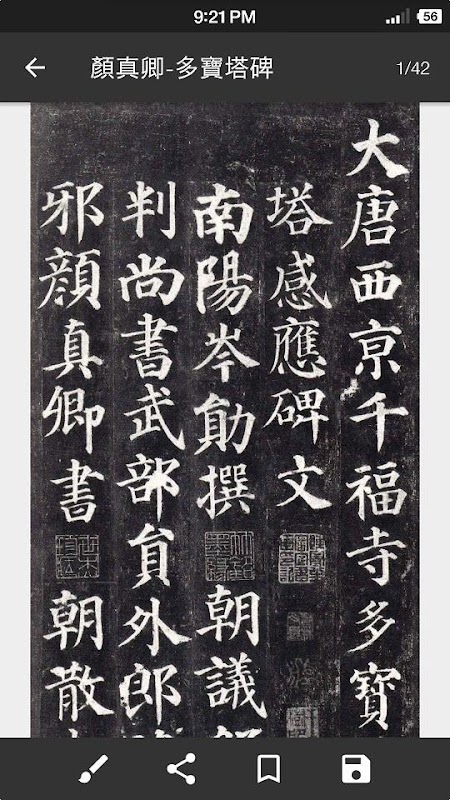 9:21 PM
56
顏真卿-多寶塔碑
1/42
大唐西京千福寺多寶
塔感應碑文
南陽岑勛撰 朝議
判尚書武部員外郎
邪顏真卿書 朝散